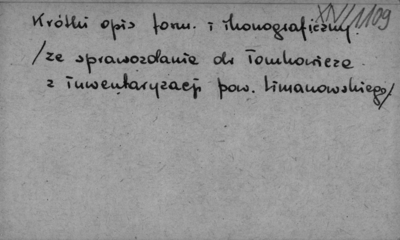 XV/1109
Krótki opis form. i ikonograficzny.
/ze sprawozdania dr Tomkowicza
z inwentaryzacji pow. Limanowskiego/